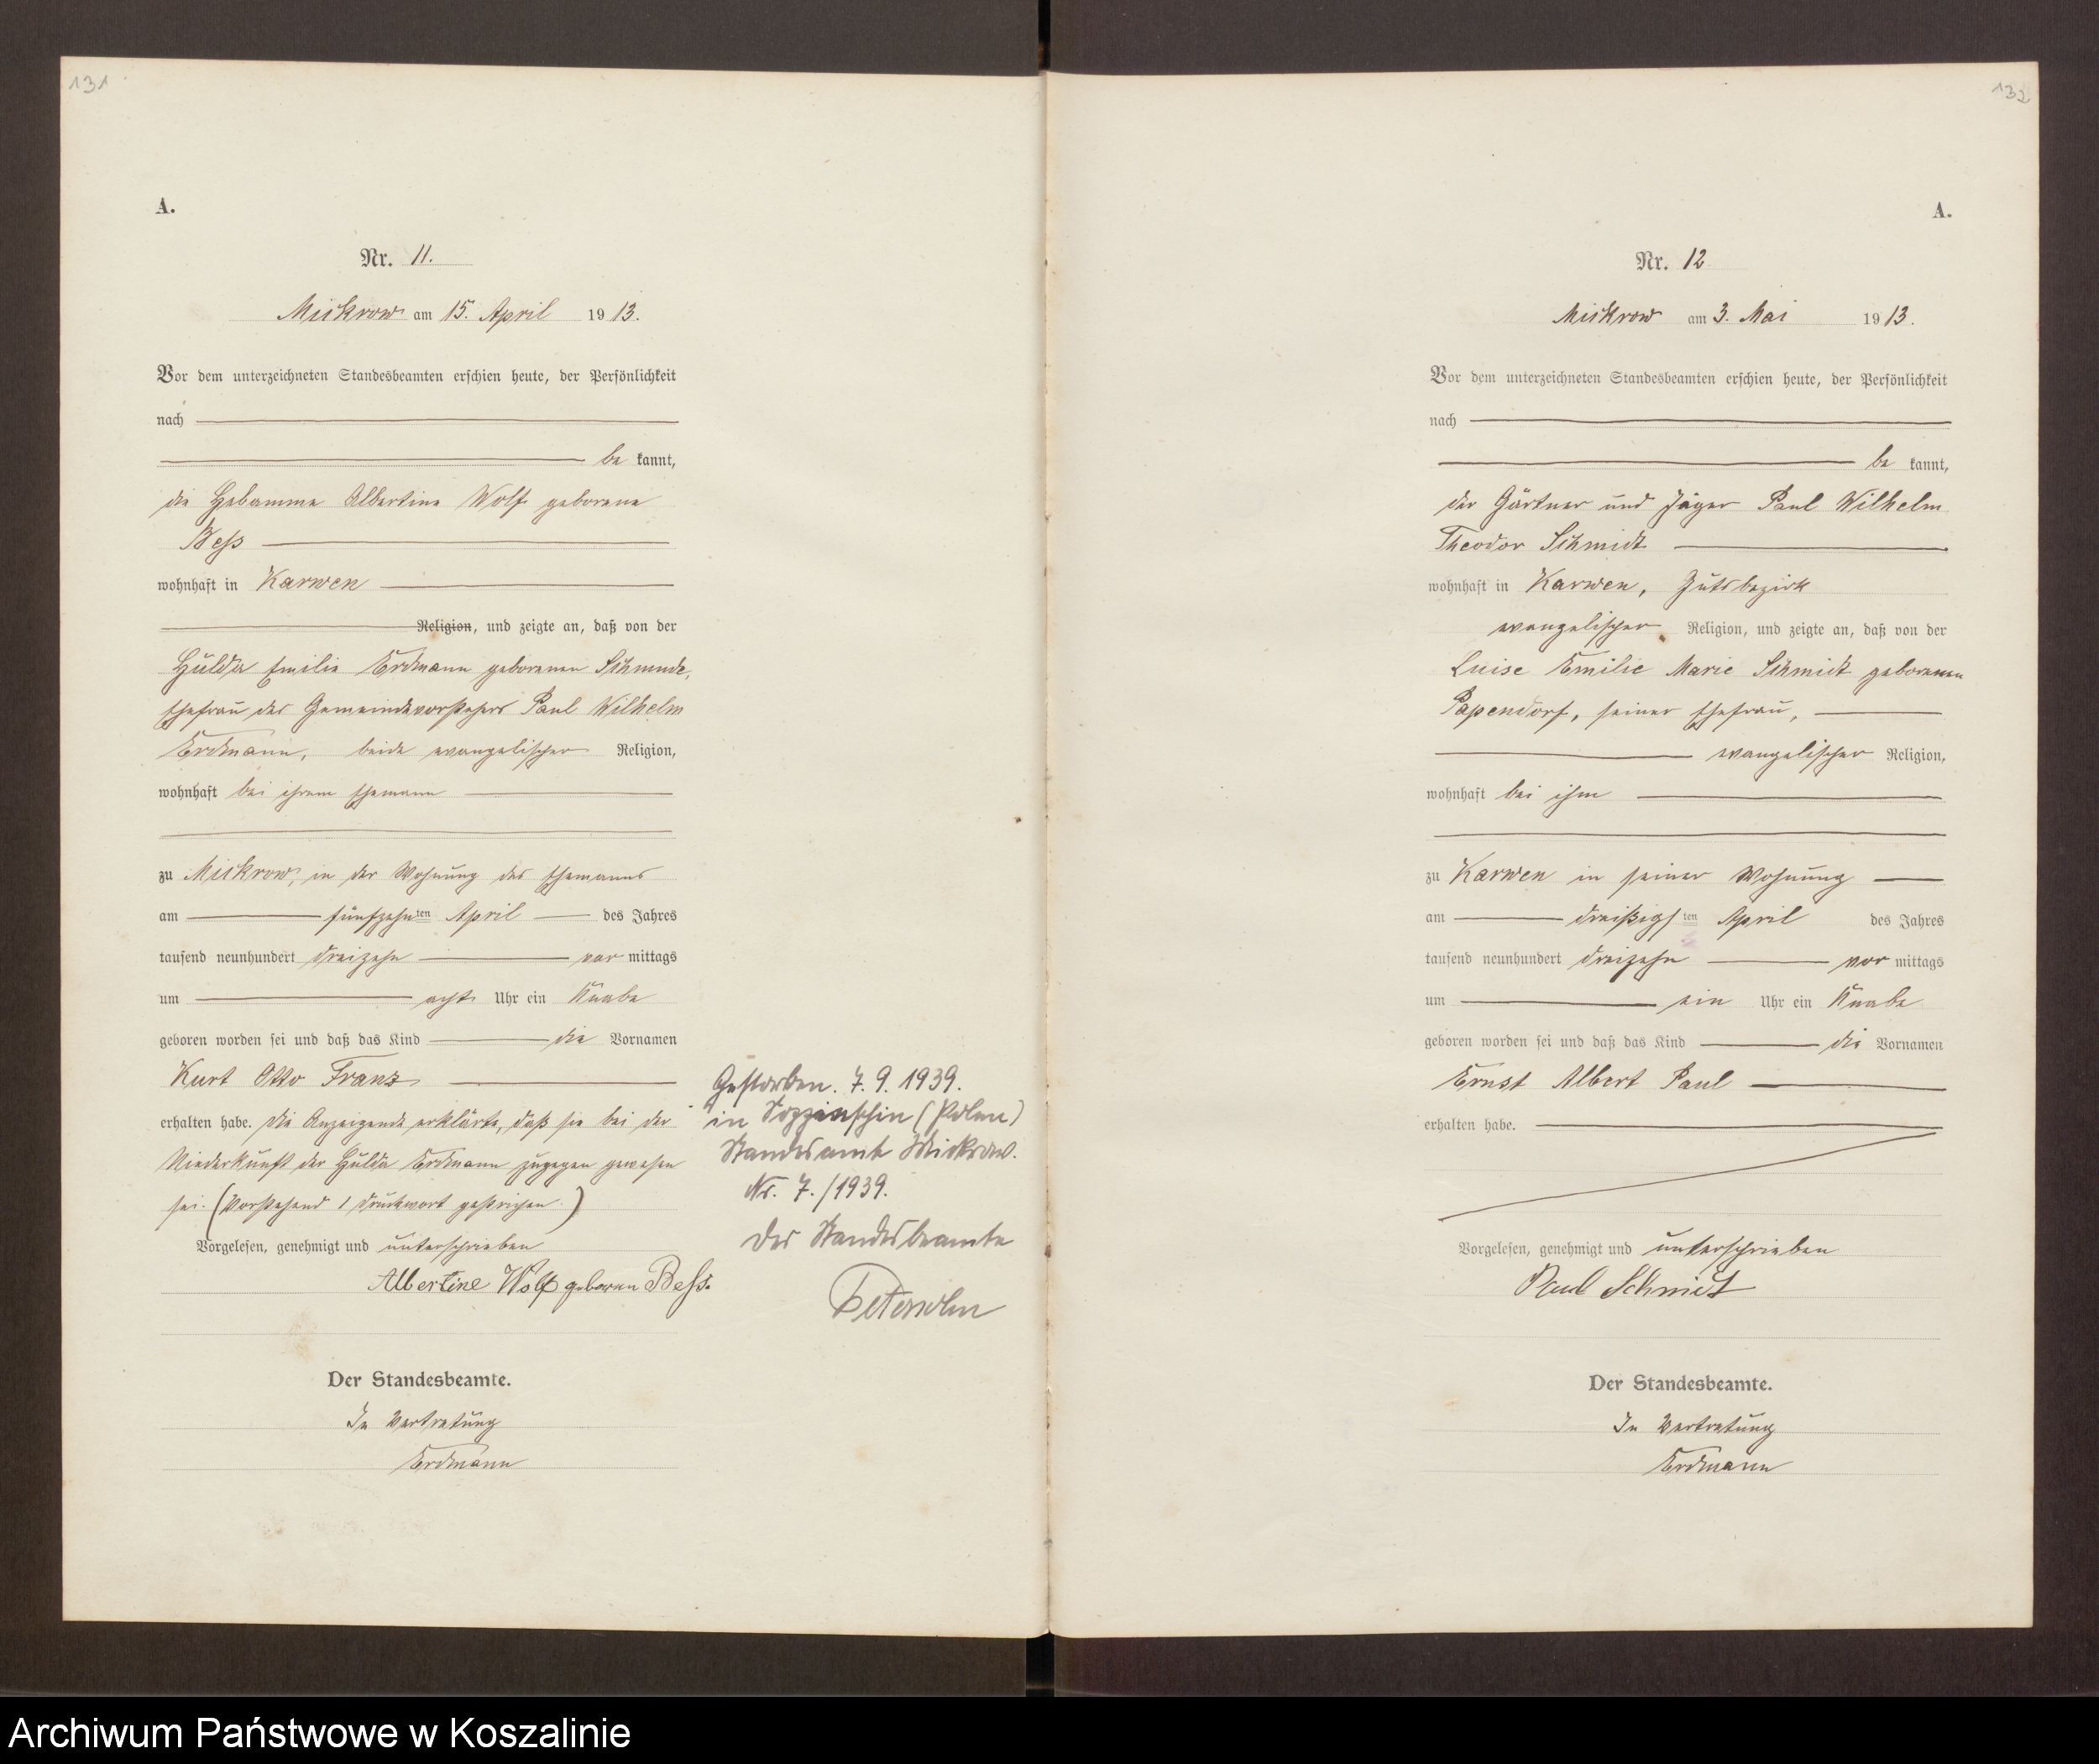 131
A.
Nr. 11.
Mickrow am 15. April 1913.
Vor dem unterzeichneten Standesbeamten erschien heute, der Persönlichkeit
nach
be kannt,
die Hebamme Albertine Wolf geborene
Bess
wohnhaft in Karwen
Religion, und zeigte an, daß von der
Hulda Emilie Erdmann geborenen
Ehefrau des Gemeindevorstehers Paul Wilhelm
Erdmann, beide evangelischer Religion,
wohnhaft bei ihrem Ehemann
zu Mickrow, in der Wohnung des Ehemanns
am fünfzehnten April des Jahres
tausend neunhundert dreizehn vor mittags
um acht Uhr ein Knabe
geboren worden sei und daß das Kind die Vornamen
Kurt Otto Franz
erhalten habe. Die Anzeigende erklärte, daß sie bei der
Niederkunft der Hulda Erdmann zugegen gewesen
sei. (Vorstehend 1 Druckwort gestrichen.)
Vorgelesen, genehmigt und unterschrieben
Albertine Wolf geboren Bess.
Der Standesbeamte.
In Vertretung
Erdmann
Gestorben. 7. 9. 1939.
in (Polen)
Standesamt Mickrow.
Nr. 7./1939.
Der Standesbeamte
132
A.
Nr. 12
Mickrow am 3. Mai 1913.
Vor dem unterzeichneten Standesbeamten erschien heute, der Persönlichkeit
nach
be kannt,
der Gärtner und Jäger Paul Wilhelm
Theodor Schmidt
wohnhaft in Karwen, Gutsbezirk
evangelischer Religion, und zeigte an, daß von der
Luise Emilie Marie Schmidt geborenen
Papendorf, seiner Ehefrau,
evangelischer Religion,
wohnhaft bei ihm
zu Karwen in seiner Wohnung
am dreißigsten April des Jahres
tausend neunhundert dreizehn vor mittags
um ein Uhr ein Knabe
geboren worden sei und daß das Kind die Vornamen
Ernst Albert Paul
erhalten habe.
Vorgelesen, genehmigt und unterschrieben
Paul Schmidt
Der Standesbeamte.
In Vertretung
Erdmann
Archiwum Państwowe w Koszalinie